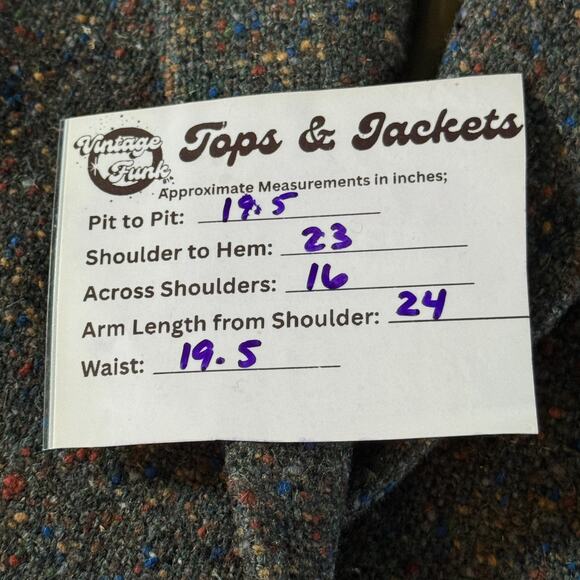 Vintage
Funk
Tops & Jackets
Approximate Measurements in inches;
Pit to Pit: 19.5
Shoulder to Hem: 23
Across Shoulders: 16
Arm Length from Shoulder: 24
Waist: 19.5